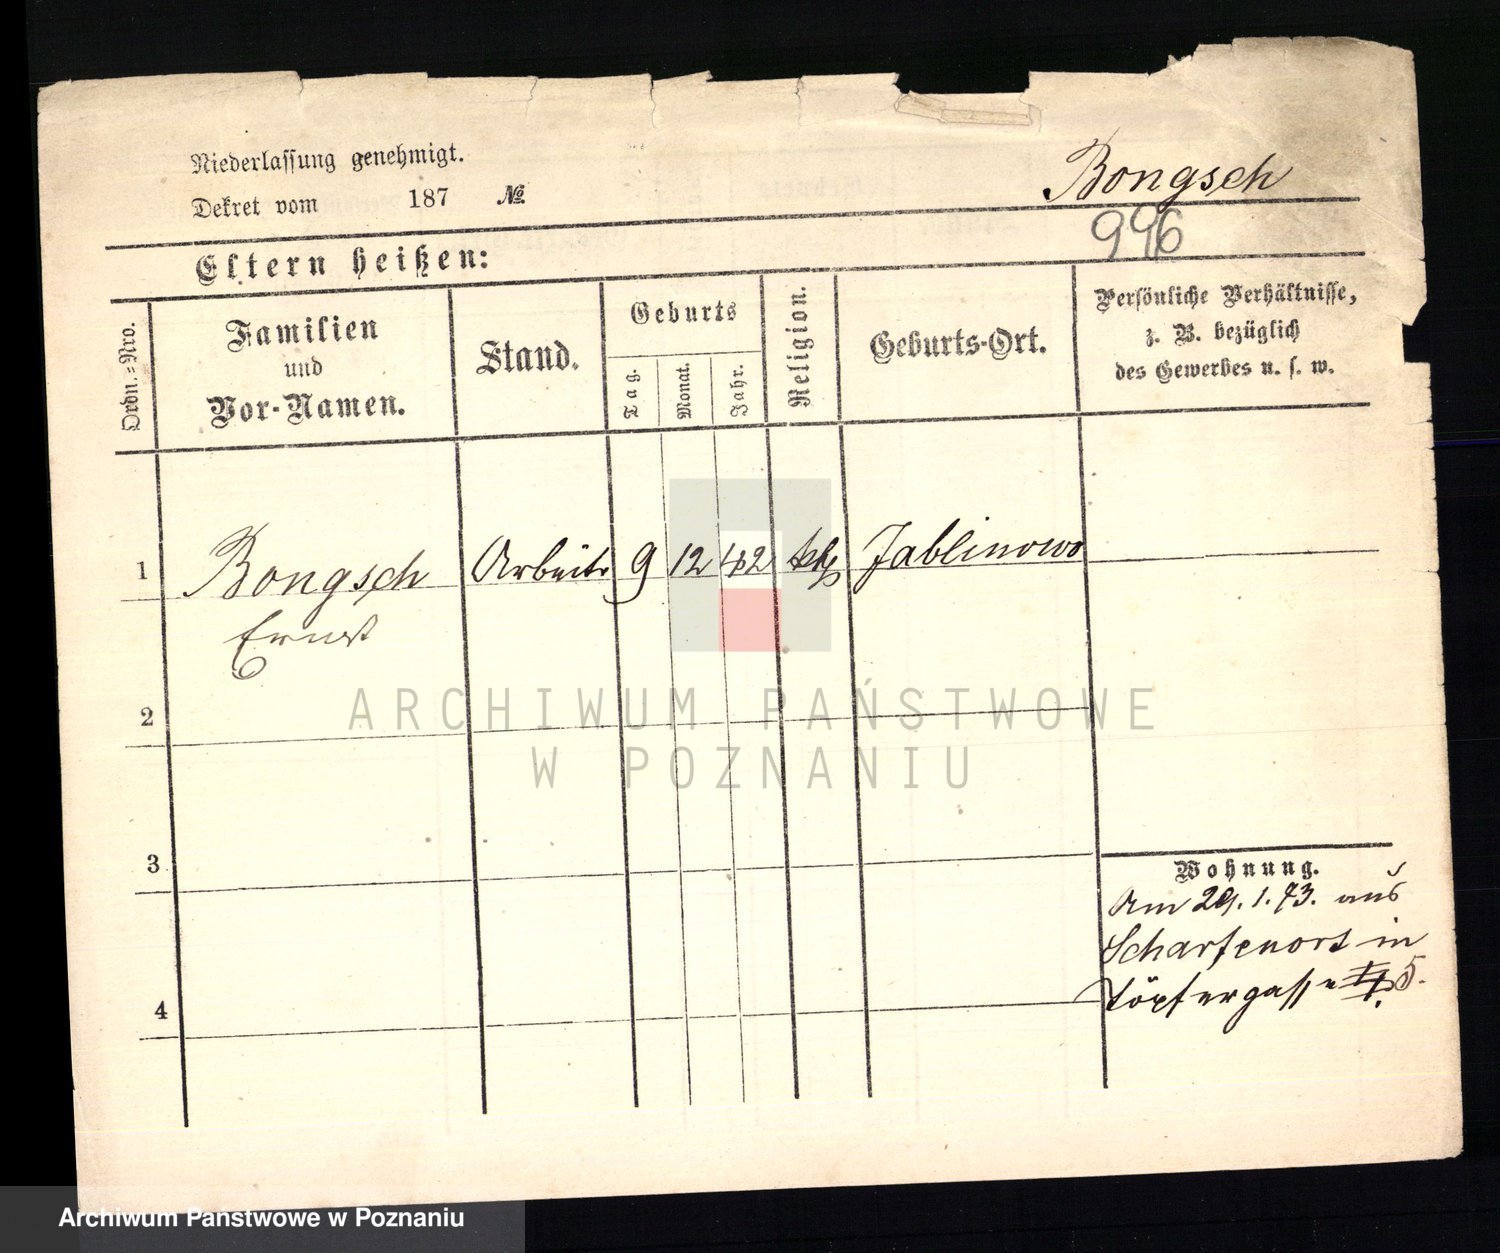 Niederlassung genehmigt.
Dekret vom 187 №
Bongsch
996
Eltern heißen:
Ordn.=Nro.
Familien
und
Vor-Namen.
Stand.
Geburts
Tag.
Monat.
Jahr.
Religion.
Geburts-Ort.
Persönliche Verhältnisse,
z. B. bezüglich
des Gewerbes u. s. w.
1 Bongsch Arbeitr 9 12 42 Jablinowo
Ernst
2
3
4
Wohnung.
Am 29. 1. 73. aus
Scharfenort in
Töpfergasse 5.
ARCHIWUM PAŃSTWOWE
W POZNANIU
Archiwum Państwowe w Poznaniu